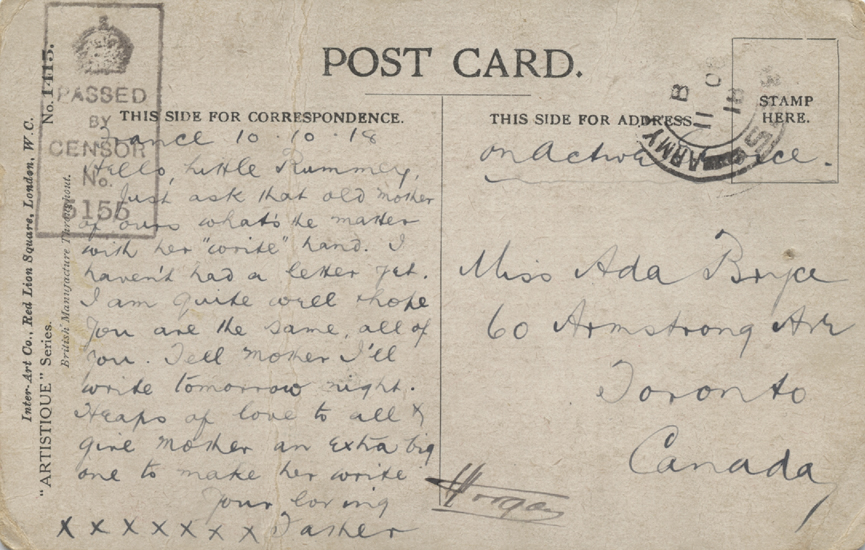 POST CARD.
PASSED
BY
CENSOR
No.
5155
THIS SIDE FOR CORRESPONDENCE.
France 10.10.18
Hello, little Rummey,
Just ask that old mother
of ours what's the matter
with her "write" hand. I
haven't had a letter yet.
I am quite well & hope
you are the same, all of
you. Tell mother I'll
write tomorrow night.
Heaps of love to all &
give mother an extra big
one to make her write
Your loving
x x x x x x x x Father
THIS SIDE FOR ADDRESS.
STAMP
HERE.
ARMY
B
11 OC
18
On Active Service.
Miss Ada Bryce
60 Armstrong Ave
Toronto
Canada
No. 1415.
Inter-Art Co., Red Lion Square, London, W.C.
"ARTISTIQUE" Series.
British Manufacture Throughout.